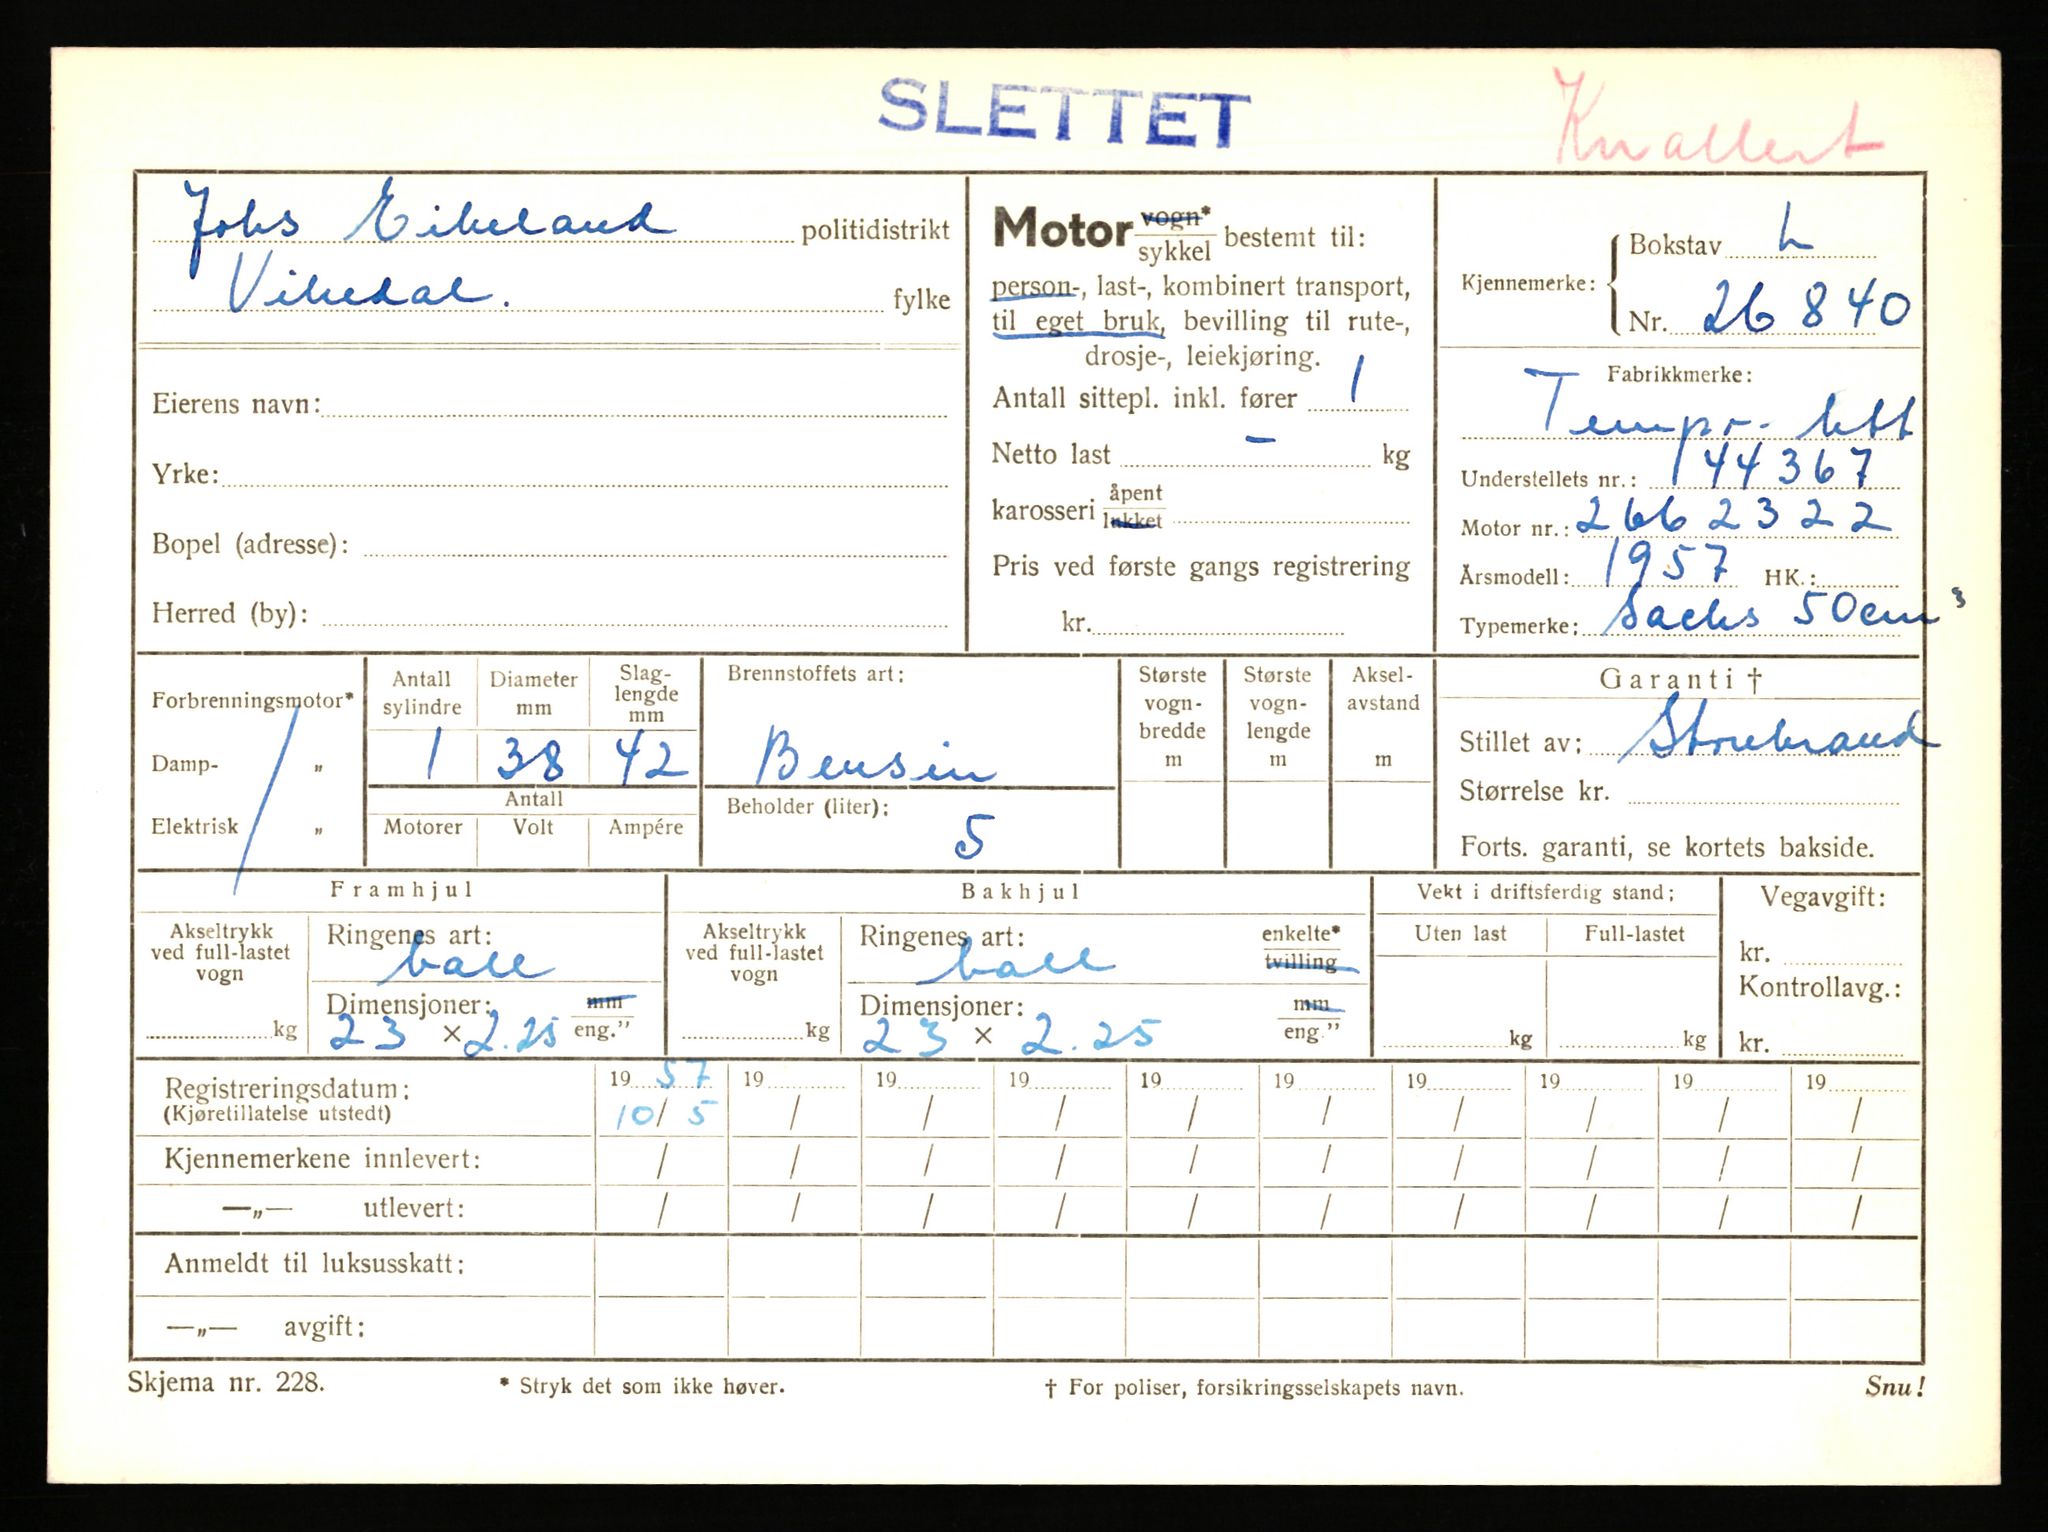 SLETTET
Knallert
Johs Eikeland politidistrikt
Vikedal. fylke
Eierens navn:
Yrke:
Bopel (adresse):
Herred (by):
Motor vogn*
sykkel bestemt til:
person-, last-, kombinert transport,
til eget bruk, bevilling til rute-,
drosje-, leiekjøring.
Antall sittepl. inkl. fører 1
Netto last – kg
karosseri åpent
lukket
Pris ved første gangs registrering
kr.
Kjennemerke: Bokstav L
Nr. 26840
Fabrikkmerke:
Tempo- lett
Understellets nr.: 144367
Motor nr.: 2662322
Årsmodell: 1957 HK.:
Typemerke: Sachs 50cm³
Forbrenningsmotor*
Damp- „
Elektrisk „
Antall sylindre Diameter mm Slag-lengde mm
1 38 42
Antall
Motorer Volt Ampére
Brennstoffets art:
Bensin
Beholder (liter):
5
Største vogn-bredde m
Største vogn-lengde m
Aksel-avstand m
Garanti †
Stillet av: Storebrand
Størrelse kr.
Forts. garanti, se kortets bakside.
Framhjul
Akseltrykk
ved full-lastet
vogn
kg
Ringenes art:
ball
Dimensjoner: mm
23 × 2.25 eng."
Bakhjul
Akseltrykk
ved full-lastet
vogn
kg
Ringenes art: enkelte*
ball tvilling
Dimensjoner: mm
23 × 2.25 eng."
Vekt i driftsferdig stand:
Uten last Full-lastet
kg kg
Vegavgift:
kr.
Kontrollavg.:
kr.
Registreringsdatum: 19 57 19 19 19 19 19 19 19 19 19
(Kjøretillatelse utstedt) 10/5 / / / / / / / / /
Kjennemerkene innlevert: / / / / / / / / / /
—„— utlevert: / / / / / / / / / /
Anmeldt til luksusskatt:
—„— avgift:
Skjema nr. 228. * Stryk det som ikke høver. † For poliser, forsikringsselskapets navn. Snu!